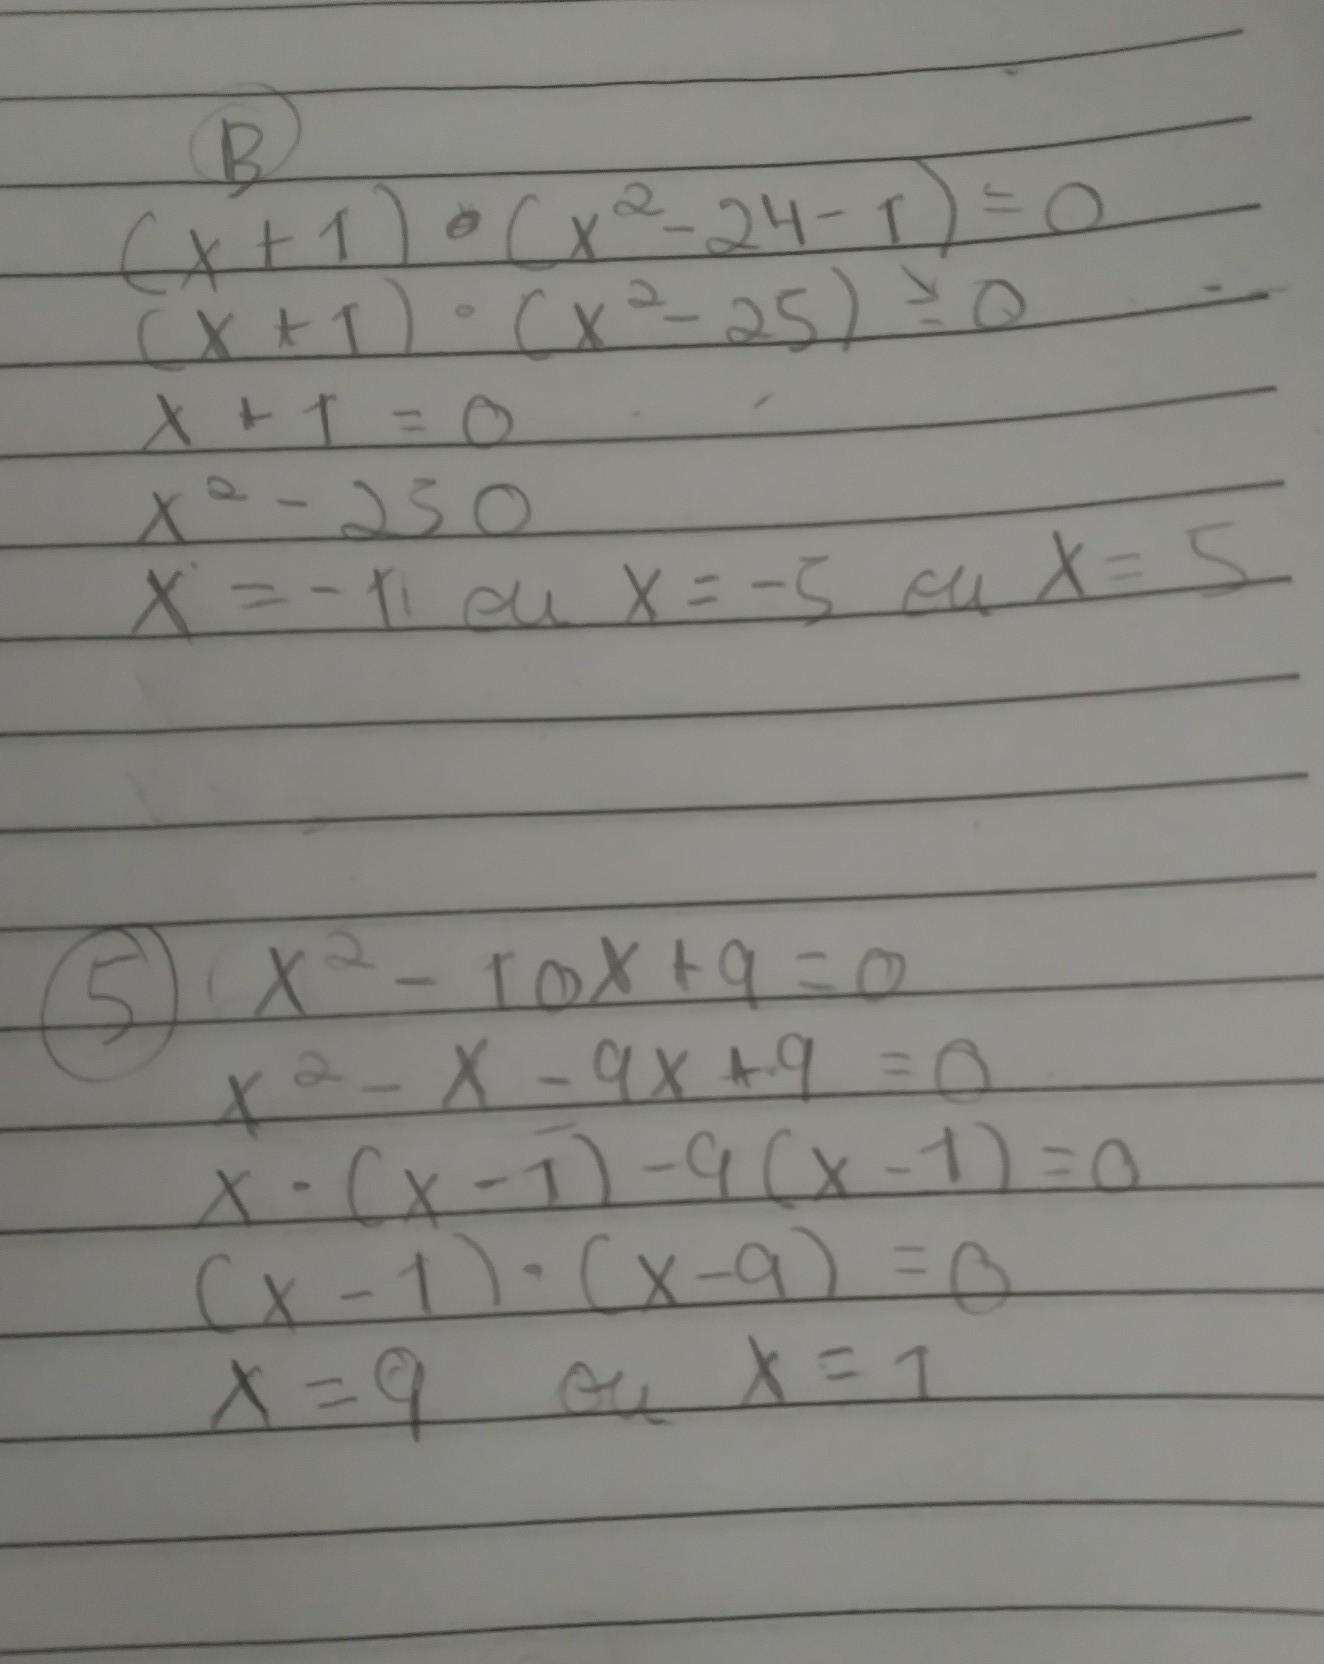 B
(x + 1) • (x² - 24 - 1) = 0
(x + 1) · (x² - 25) ≥ 0
x + 1 = 0
x² - 25 0
x = -1 ou x = -5 ou x = 5
5 x² - 10x + 9 = 0
x² - x - 9x + 9 = 0
x · (x - 1) - 9 (x - 1) = 0
(x - 1) · (x - 9) = 0
x = 9 ou x = 1